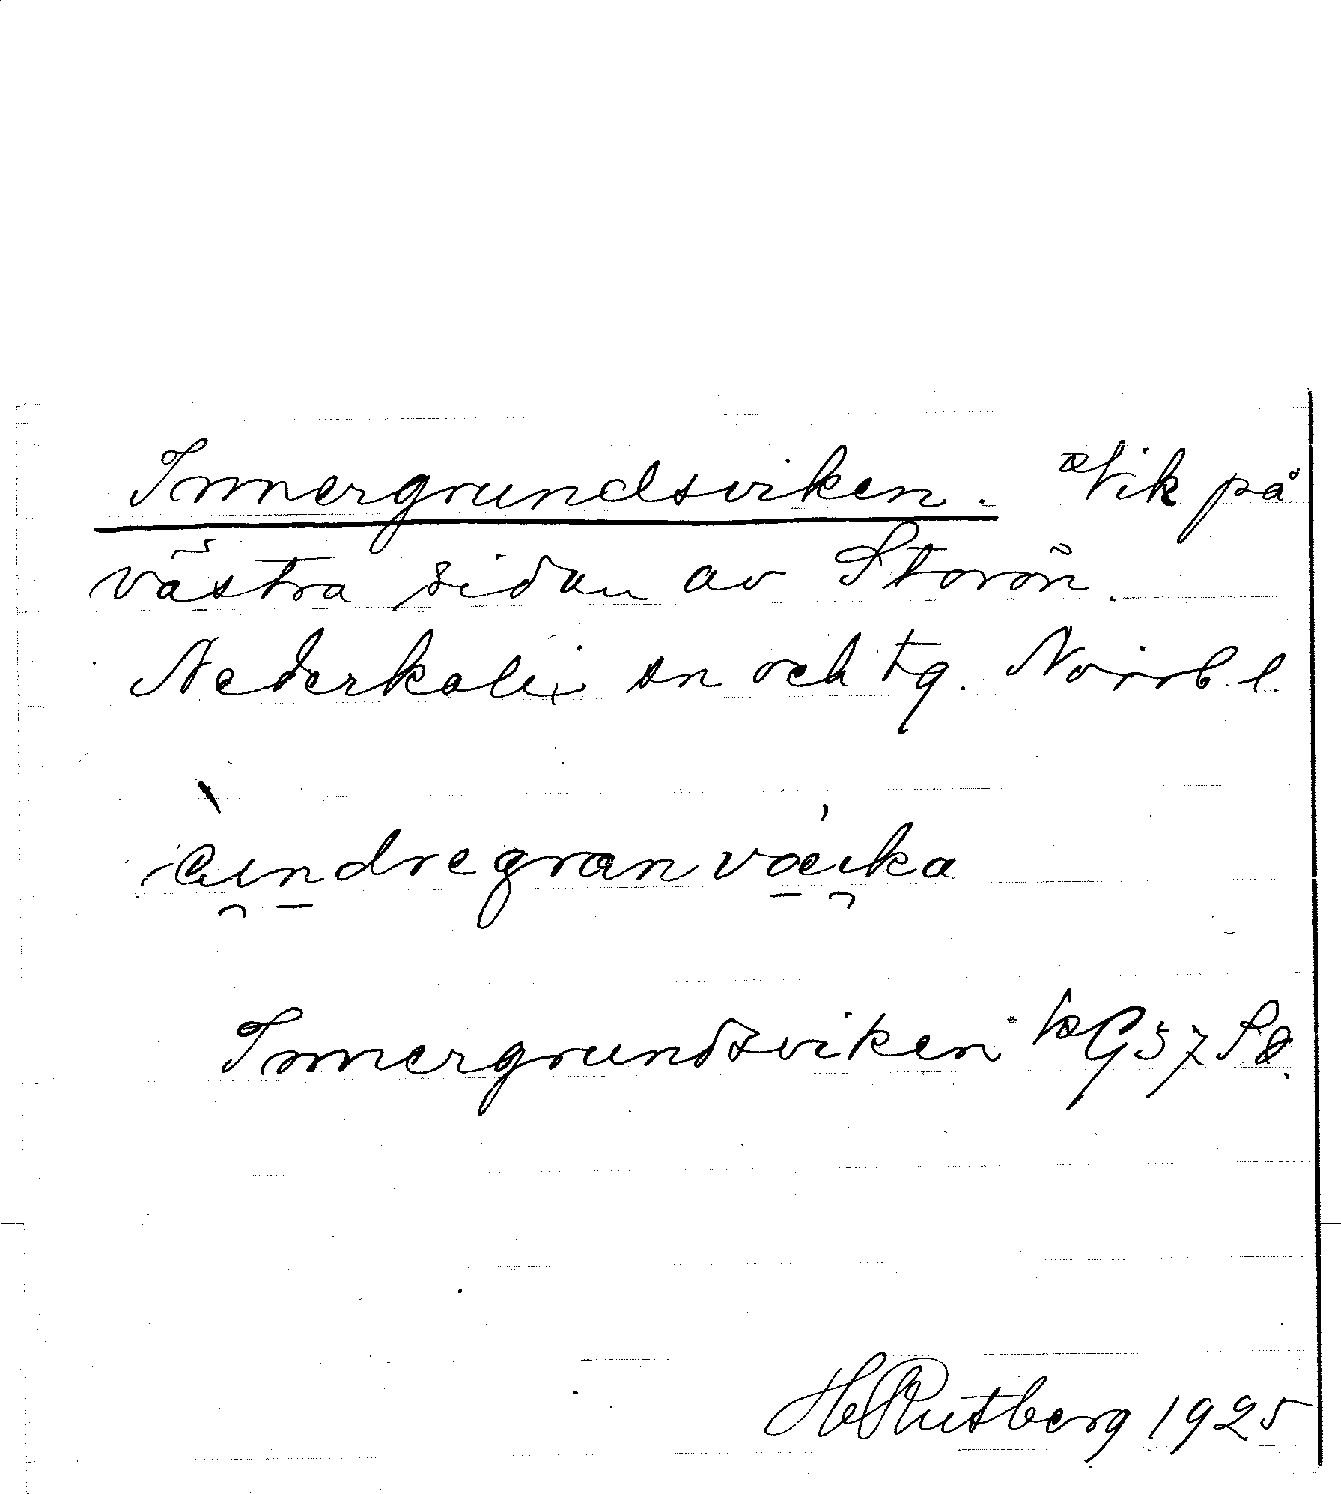 Innergrundsviken. Vik på
västra sidan av Storön.
Nederkalix sn och tg. Norrb. l.
Innergrundsviken
H Rutberg 1925